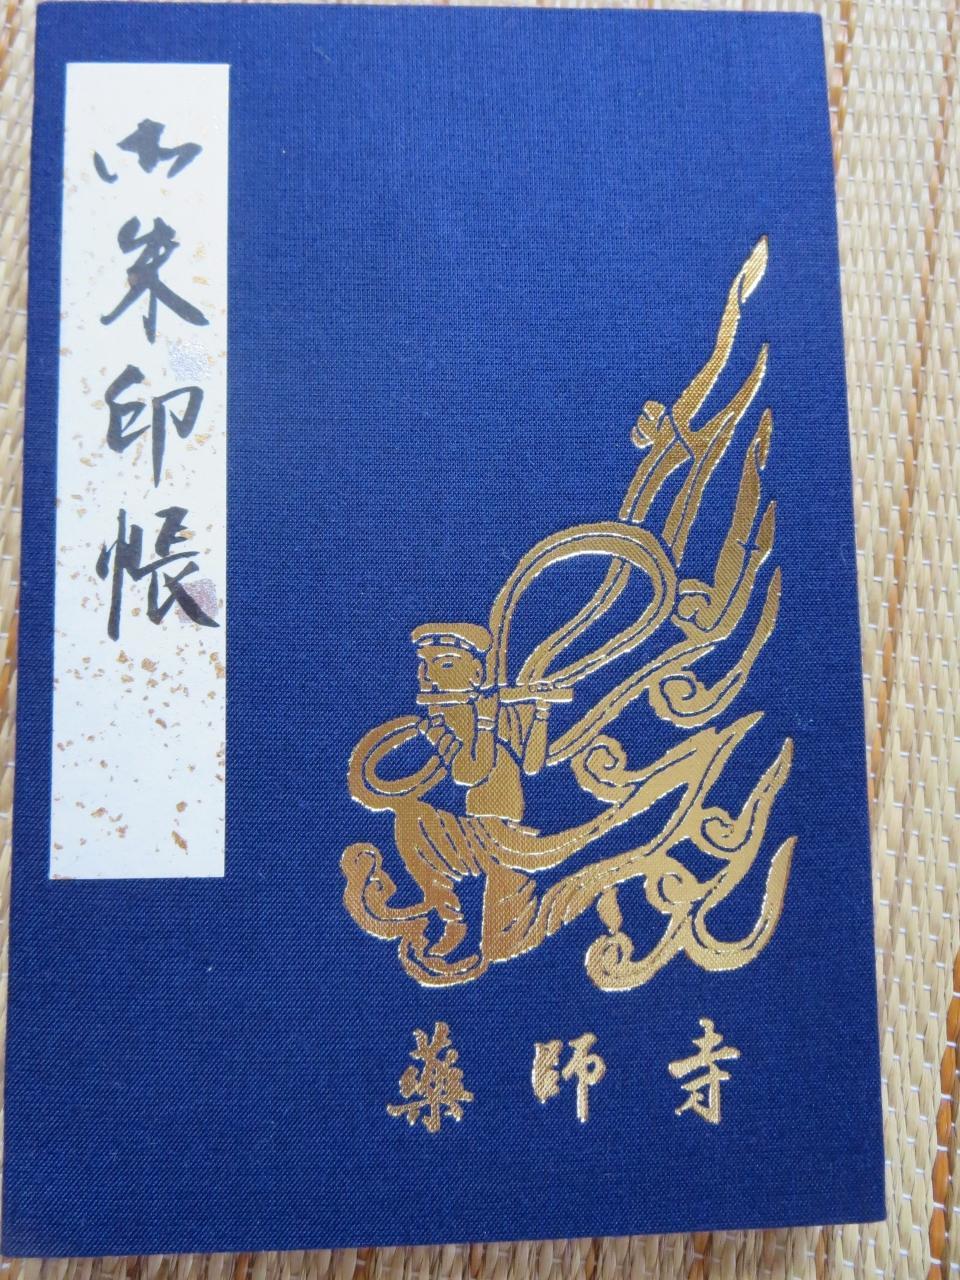 御朱印帳
藥師寺